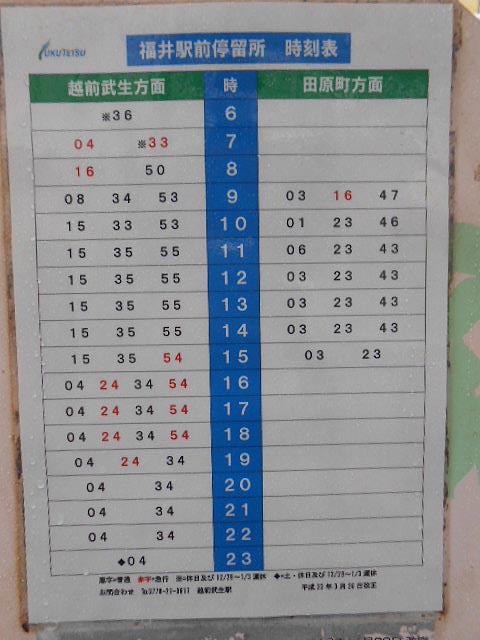 FUKUTETSU
福井駅前停留所 時刻表
越前武生方面 時 田原町方面
※36 6
04 ※33 7
16 50 8
08 34 53 9 03 16 47
15 33 53 10 01 23 46
15 35 55 11 06 23 43
15 35 55 12 03 23 43
15 35 55 13 03 23 43
15 35 55 14 03 23 43
15 35 54 15 03 23
04 24 34 54 16
04 24 34 54 17
04 24 34 54 18
04 24 34 19
04 34 20
04 34 21
04 34 22
◆04 23
黒字=普通 赤字=急行 ※=休日及び12/29~1/3運休 ◆=土・休日及び12/29~1/3運休
お問合わせ 越前武生駅 平成